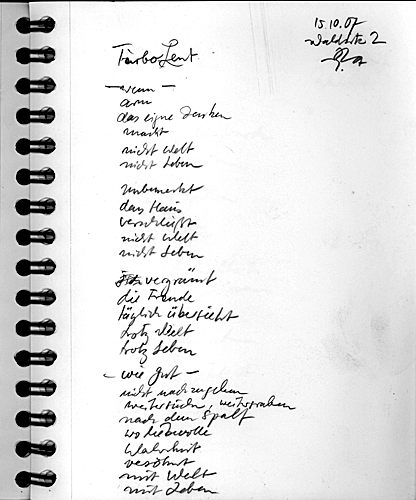 15.10.07
Waldsite 2
TurboLent
– wenn –
arm
das eigne Denken
macht
nicht Welt
nicht Leben
unbemerkt
das Haus
verschließt
nicht Welt
nicht Leben
vergrämt
die Freude
täglich übersieht
trotz Welt
trotz Leben
– wie gut –
nicht nachzugeben
weitersuchen, weitergraben
nach dem Spalt
wo liebevolle
Wahrheit
versöhnt
mit Welt
mit Leben